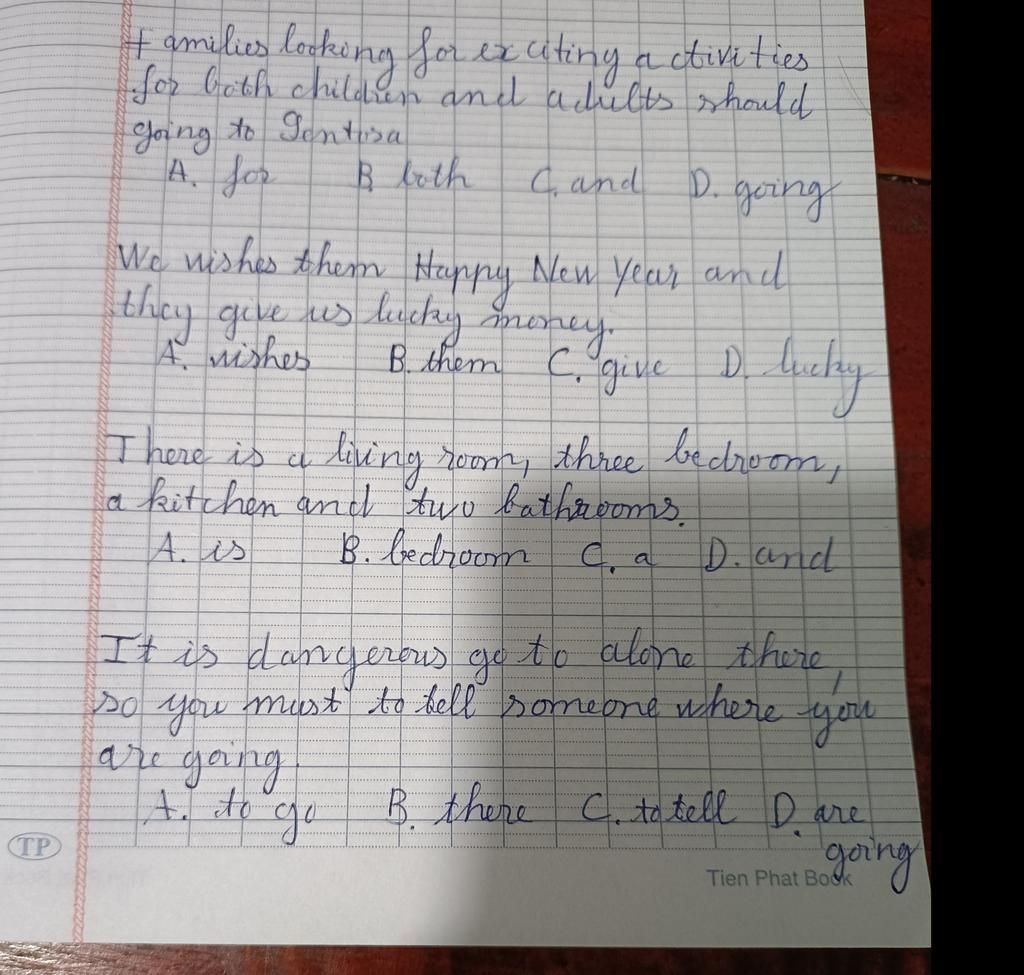 Families looking for exciting activities
for both children and adults should
going to
A. for B both C. and D. going
We wishes them Happy New Year and
they give us lucky money.
A. wishes B. them C. give D. lucky
There is a living room, three bedroom,
a kitchen and two bathrooms.
A. is B. bedroom C. a D. and
It is dangerous go to alone there,
so you must to tell someone where you
are going.
A. to go B. there C. to tell D. are
going
TP
Tien Phat Book